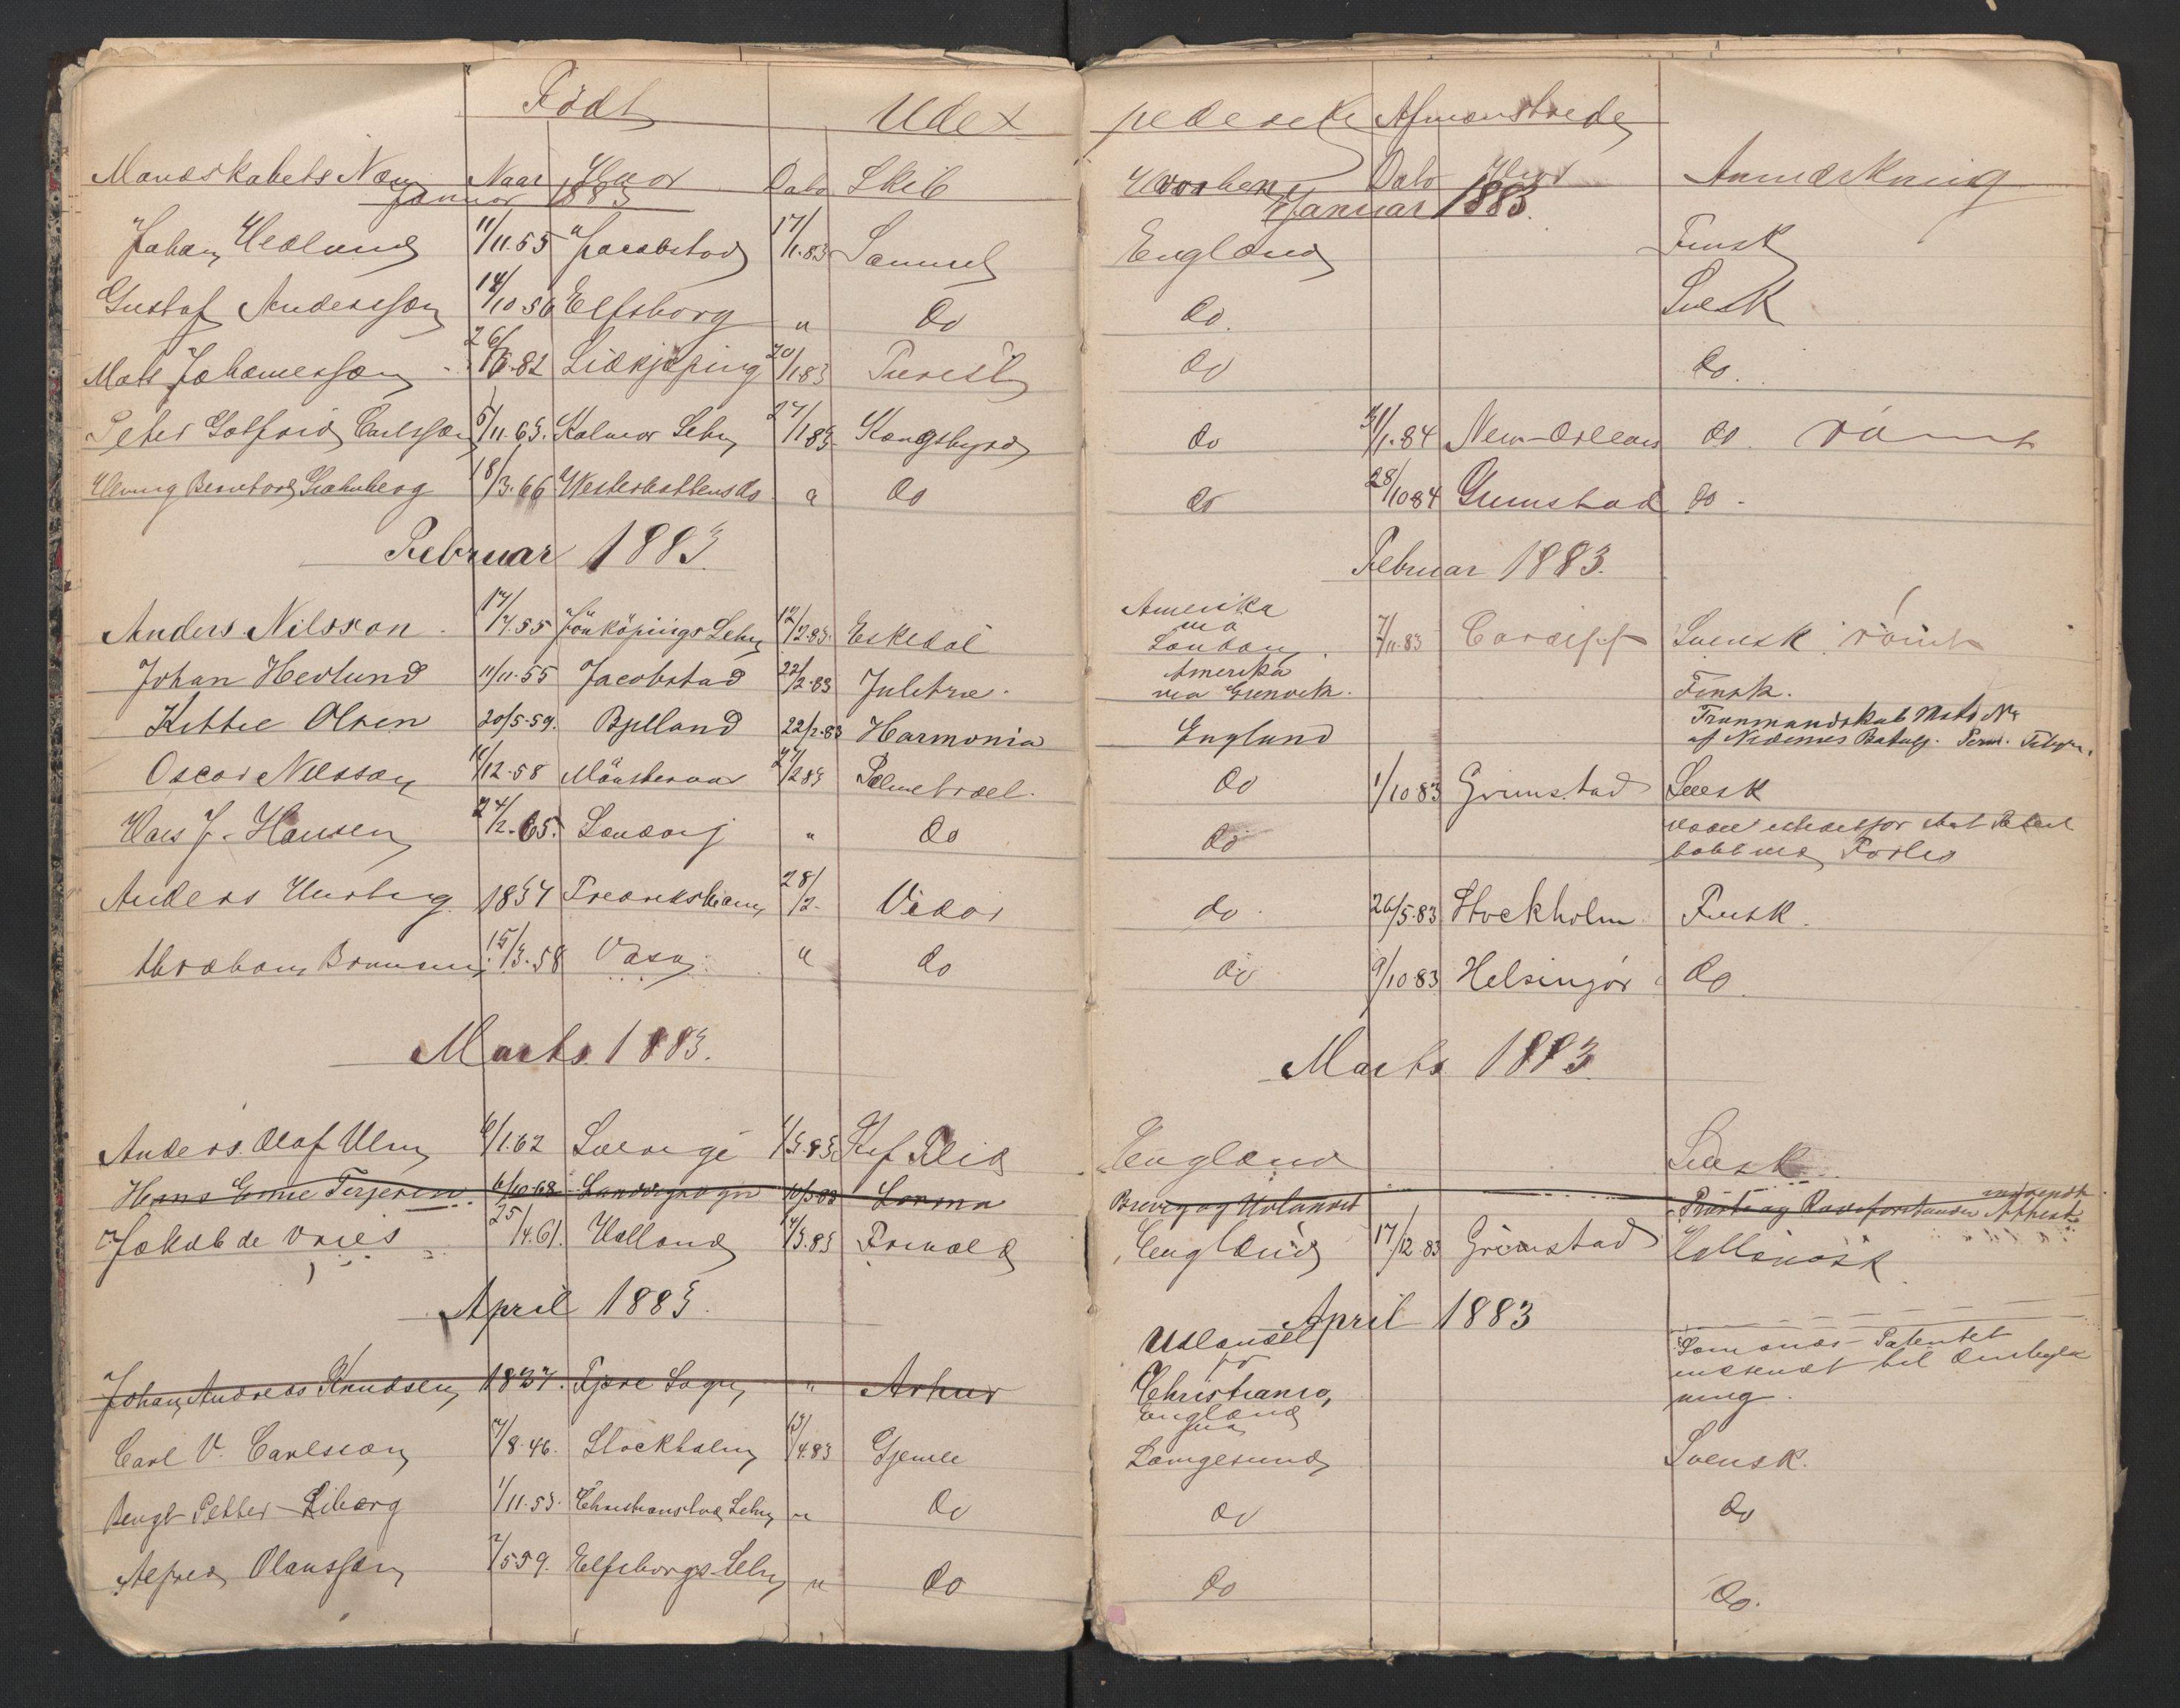 Født Udex
Mandskabets Navn Naar Hvor Dato Skib
Januar 1883
Johan Hedlund 11/11.55 Jacobstad 17/1.83 Samuel
Gustaf Andersson 14/10 56 Elfsborg " do
Mats Johannesson 26/6.82 Lidkjøping 20/1 83
Peter Gotfrid Carlsson 5/11.63. Kalmar Lehn 27/1 83 Kongsbyrd
18/3.66 Westerbottens do " do
Februar 1883.
Anders Nilsson 17/7.55 Jönköpings Lehn 12/2.83. Eskedal
Johan Hedlund 11/11-55 Jacobstad 22/2-83 Juletræ.
Kittel Olsen 20/5-59. Bjelland 22/2-83 Harmonia
Oscar Nilsson 11/12-58 Mönsteraas 27/2 83 Palmetræet.
Hans J. Hansen 24/2-65. " do
Anders 1837 Fredrikshamn 28/2- Vidar
Abraham 15/3-58 Vasa " do
Marts 1883.
Anders Olaf Ulin 6/1.62 Sverige 1/3.83
Hans Terjesen. 6/10-68 Landvigsogn 10/3-83 Lorma
Jakob de Vries 25/4.61. Holland 14/3.83
April 1883.
Johan Andreas Knudsen 1837. Fjære Sogn " Arthur
Carl V. Carlsson 7/8-46. Stockholm 13/4.83 Gjemle
Bengt Petter Liborg 1/11.53. Christianstad Lehn " do
Alfred Olaussen 2/5 59. Elfsborgs Lehn " do
pederede Afmønstrede
Hvorhen Dato Hvor Anmærkning
Januar 1883.
England Finsk
do. Svensk
do do.
do 31/1.84 New-Orleans do. rømt
do 28/10 84 Grimstad do -
Februar 1883.
Amerika
via
London 7/11.83 Cardiff Svensk rømt
Amerika
via Grenvik. Finsk.
England
do 1/10 83 Grimstad Svensk
do
do. 26/5.83 Stockholm Finsk.
do 9/10 83 Helsingør do
Marts 1883.
England Svensk
Brevig og Udlandet
England 17/12.83 Grimstad Hollandsk
April 1883
Udlandet
Christiania,
Sømands-Patentet
indsendt til
ning.
England
via
Langesund Svensk.
do do
do do.